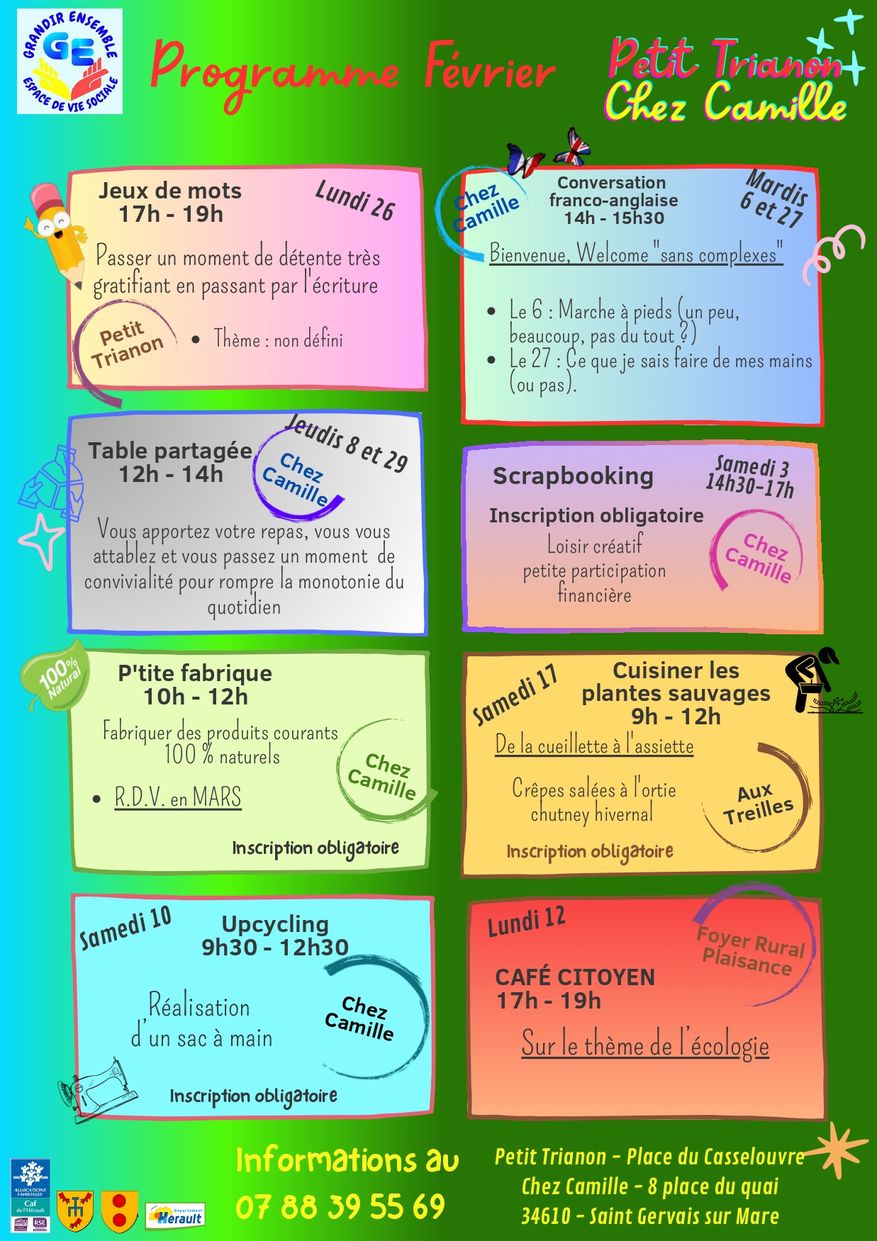 GRANDIR ENSEMBLE
GE
ESPACE DE VIE SOCIALE
Programme Février
Petit Trianon
Chez Camille
Jeux de mots
17h - 19h
Lundi 26
Passer un moment de détente très
gratifiant en passant par l'écriture
Petit
Trianon
• Thème : non défini
Chez
Camille
Conversation
franco-anglaise
14h - 15h30
Mardis
6 et 27
Bienvenue, Welcome "sans complexes"
• Le 6 : Marche à pieds (un peu,
beaucoup, pas du tout ?)
• Le 27 : Ce que je sais faire de mes mains
(ou pas).
Table partagée
12h - 14h
Jeudis 8 et 29
Chez
Camille
Vous apportez votre repas, vous vous
attablez et vous passez un moment de
convivialité pour rompre la monotonie du
quotidien
Scrapbooking
Samedi 3
14h30-17h
Inscription obligatoire
Loisir créatif
petite participation
financière
Chez
Camille
100%
Natural
P'tite fabrique
10h - 12h
Fabriquer des produits courants
100 % naturels
Chez
Camille
• R.D.V. en MARS
Inscription obligatoire
Samedi 17
Cuisiner les
plantes sauvages
9h - 12h
De la cueillette à l'assiette
Crêpes salées à l'ortie
chutney hivernal
Aux
Treilles
Inscription obligatoire
Samedi 10
Upcycling
9h30 - 12h30
Réalisation
d'un sac à main
Chez
Camille
Inscription obligatoire
Lundi 12
Foyer Rural
Plaisance
CAFÉ CITOYEN
17h - 19h
Sur le thème de l'écologie
Informations au
07 88 39 55 69
Petit Trianon - Place du Casselouvre
Chez Camille - 8 place du quai
34610 - Saint Gervais sur Mare
ALLOCATIONS
FAMILIALES
Caf
de l'Hérault
RSE
Département
Hérault